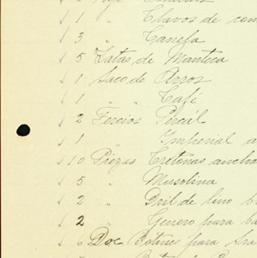 " 1 " Clavos de com
" 3 " Canela
" 5 Latas de Manteca
" 1 Saco de Arros
" 1 " Café
" 2 Tercios Percál
" 1 " Imperial a
" 10 Piezas Cretonas ancho
" 5 " Musolina
" 2 " Dril de lino b
" 2 " Genero para ba
" 6 Doc. Botines para